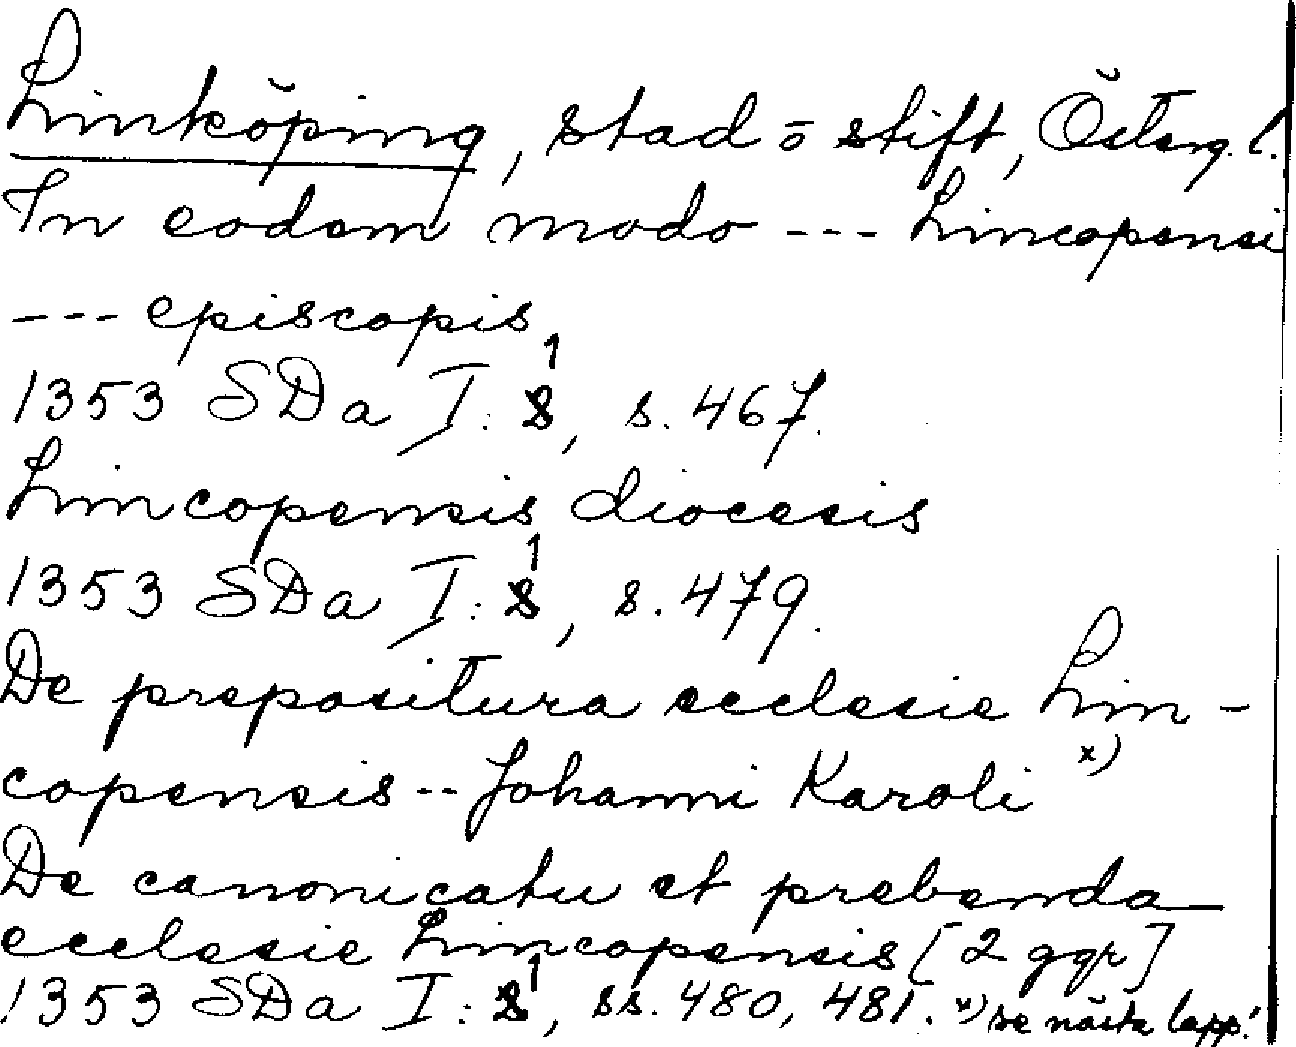 Linköping, stad o stift, Österg. l.
In eodem modo --- Lincopensi
--- episcopis
1353 SDa I: 1, s. 467.
Lincopensis diocesis
1353 SDa I: 1, s. 479.
De prepositura ecclesie Lin-
copensis -- Johanni Karoli x)
De canonicatu et prebenda
ecclesie Lincopensis [2 ggr]
1353 SDa I: 1, ss. 480, 481. x) se nästa lapp!